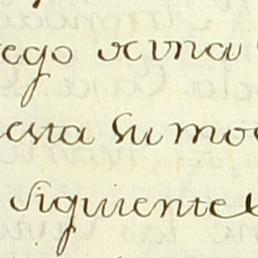 ego de una
esta su mo
siguiente